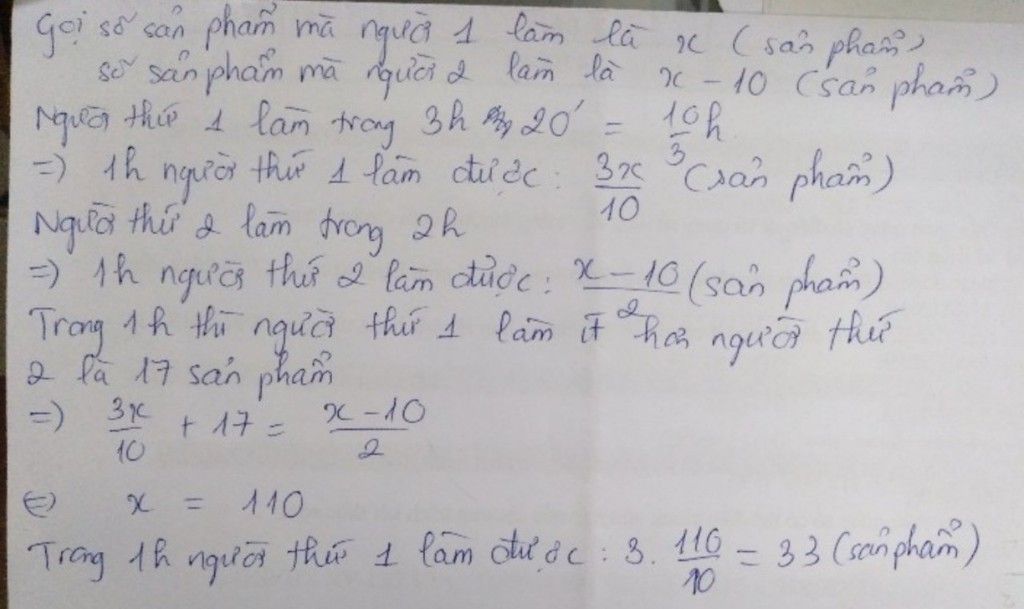 Gọi số sản phẩm mà người 1 làm là x (sản phẩm)
số sản phẩm mà người 2 làm là x - 10 (sản phẩm)
Người thứ 1 làm trong 3h 20' = 10/3 h
=) 1h người thứ 1 làm được: 3x/10 (sản phẩm)
Người thứ 2 làm trong 2h
=) 1h người thứ 2 làm được: x - 10/2 (sản phẩm)
Trong 1h thì người thứ 1 làm ít hơn người thứ
2 là 17 sản phẩm
=) 3x/10 + 17 = x - 10/2
(=) x = 110
Trong 1h người thứ 1 làm được: 3. 110/10 = 33 (sản phẩm)